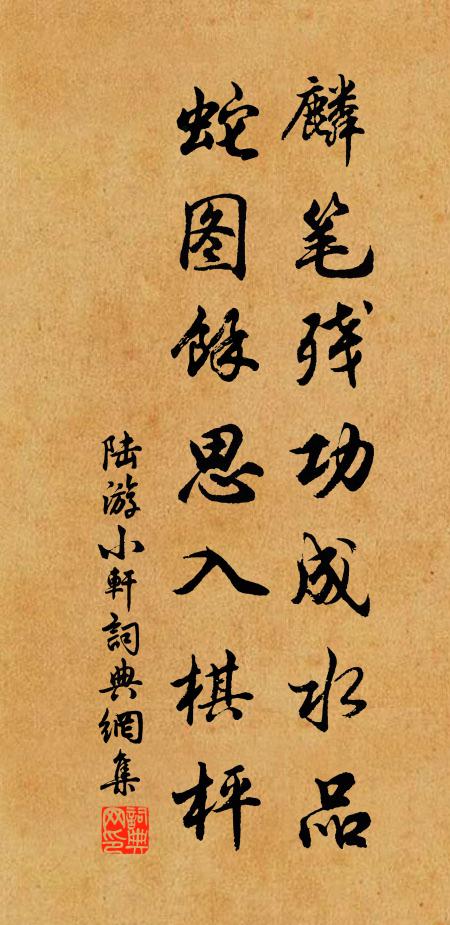 麟笔残功成水品
蛇图餘思入棋枰
陆游小軒詞典網集
詞典网印